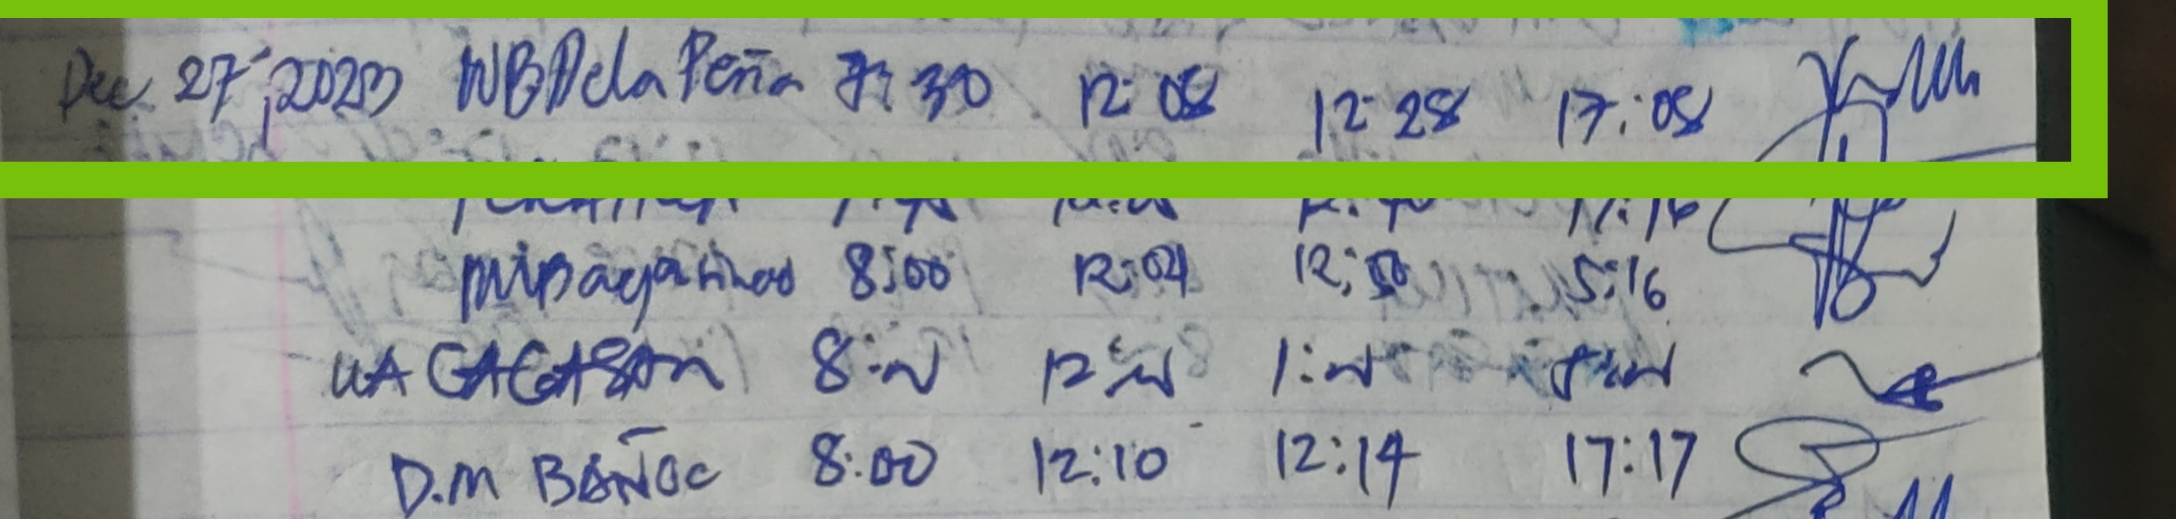 Dec 27, 2023 WB Dela Peña 7:30 12:08 12:28 17:08
17:16
8:00 12:04 12:50 5:16
UA GAGASAN 8:00 12:00 1:00 5:00
D.M BAÑOC 8:00 12:10 12:14 17:17